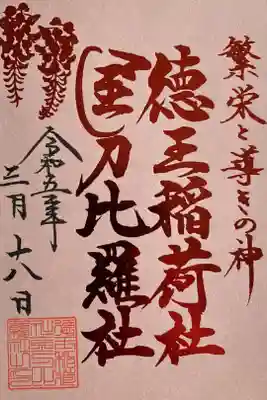 繁栄と導きの神
徳王稲荷社
金刀比羅社
令和五年
三月十八日